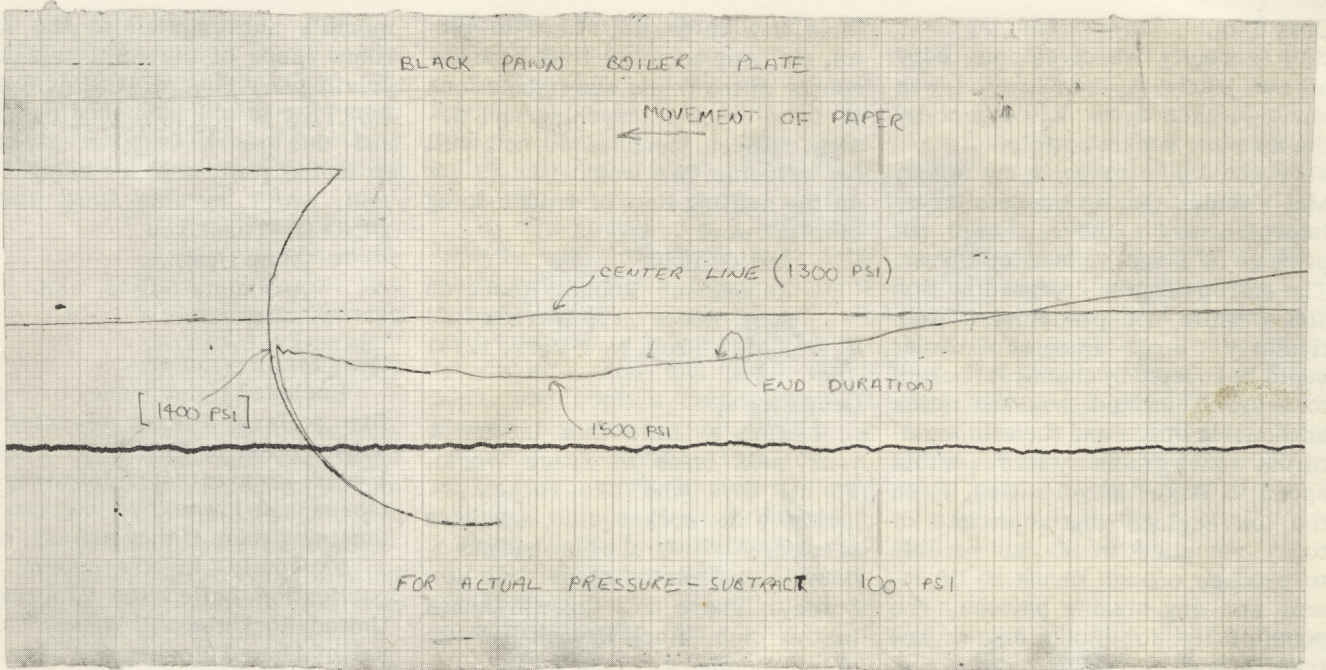 BLACK PAWN BOILER PLATE
MOVEMENT OF PAPER
CENTER LINE (1300 PSI)
END DURATION
[1400 PSI]
1500 PSI
FOR ACTUAL PRESSURE - SUBTRACT 100 PSI